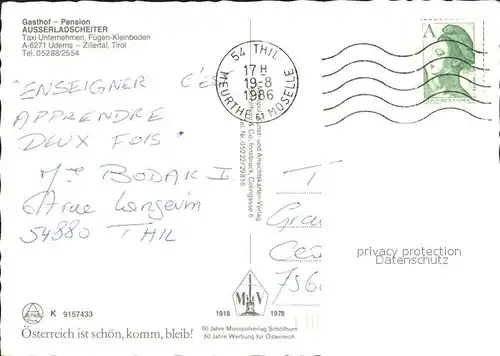 Gasthof – Pension
AUSSERLADSCHEITER
Taxi Unternehmen, Fügen-Kleinboden
A-6271 Uderns – Zillertal, Tirol
Tel. 05288/2554
54 THIL
17 H
19-8
1986
MEURTHE ET MOSELLE
A
"ENSEIGNER C'ES
APPRENDRE
DEUX FOIS"
Mme BODAK I.
rue Langevin
54880 THIL
T
Gra
Ce
756
privacy protection
Datenschutz
& Co, Innsbruck, Colingasse 6
Tel. Nr. 05222/29816
K 9157433
Österreich ist schön, komm, bleib!
M V
1918 1978
60 Jahre Monopolverlag Schöllhorn
60 Jahre Werbung für Österreich